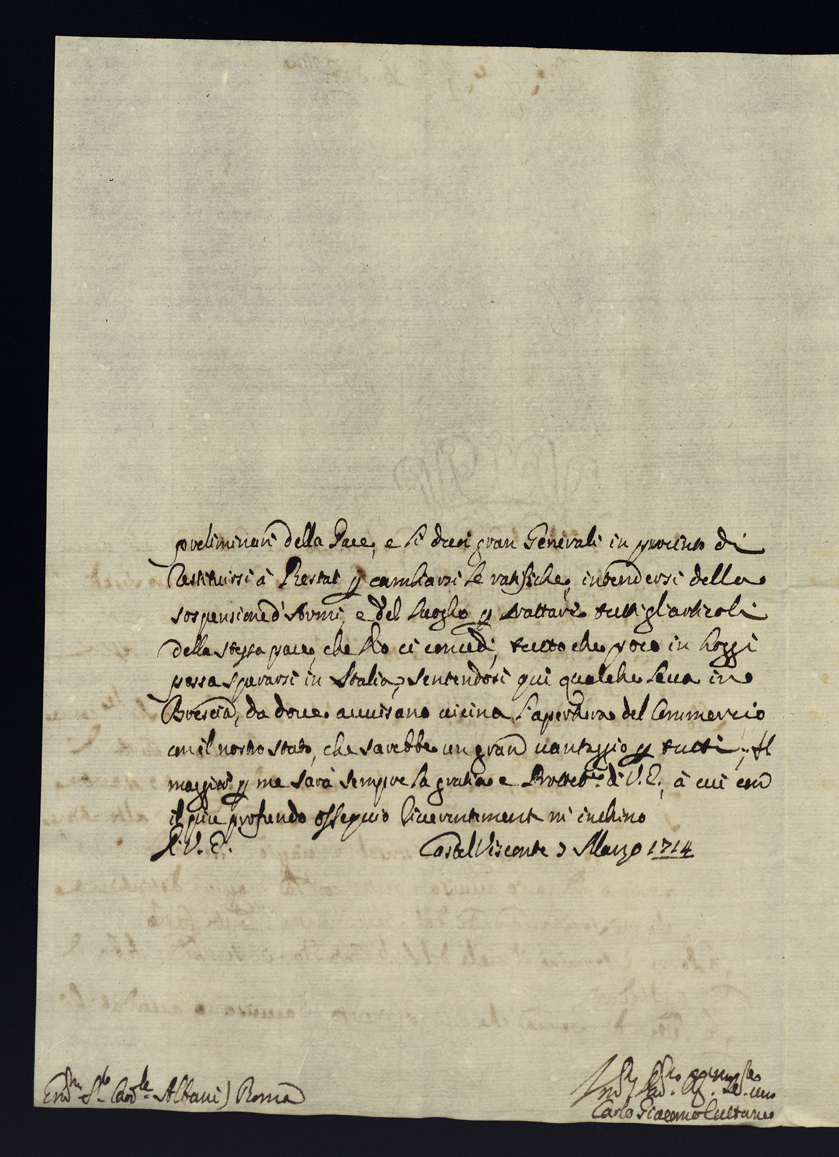 preliminari della Pace, e li duoi gran Generali in procinto di
restituirsi à Restat p cambiarsi le ratifiche, intendersi della
sospensione d'Armi, e del luogho p trattare tutti gl'articoli
della stessa pace, che Dio ci concedi, tutto che poco in hoggi
possa sperarsi in Italia, sentendosi qui qualche leua in
Brescia, da doue auuisano uicina l'apertura del Commercio
con il nostro stato, che sarebbe un gran uantaggio p tutti, Il
maggior p me sarà sempre la gratia e Prottet.ne di V. E., à cui con
il piu profondo osseguio riuerentement mi inchino
di V. E. Castel Visconte 7 Marzo 1714
Em. S. Card.le Albani) Roma
Carlo Giacomo Cattaneo